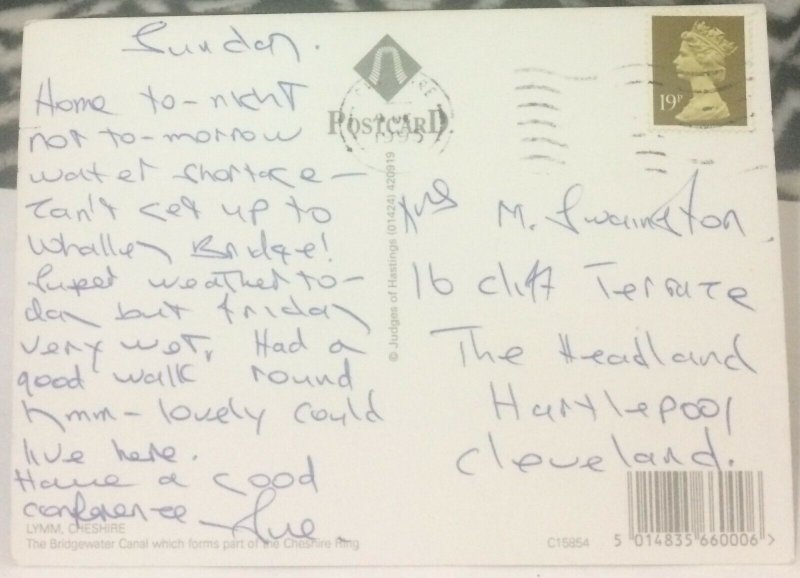 Sunday.
Home to-night
not to-morrow
water shortage -
Can't get up to
Whalley Bridge!
Super weather to-
day but friday
very wet. Had a
good walk round
Lymm - lovely could
live here.
Have a good
conference - Sue
LYMM, CHESHIRE
The Bridgewater Canal which forms part of the Cheshire Ring
POSTCARD
1995
© Judges of Hastings (01424) 420919
19P
Mrs M. Swainston
16 Cliff Terrace
The Headland
Hartlepool
Cleveland.
C15854
5 014835 660006 >